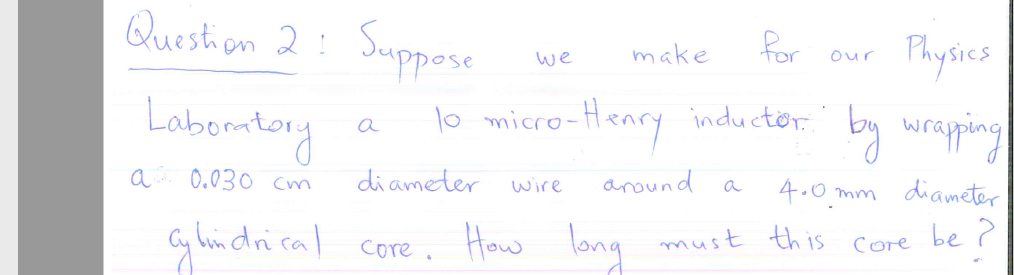 Question 2 : Suppose we make for our Physics
Laboratory a 10 micro-Henry inductor by wrapping
a 0.030 cm diameter wire around a 4.0 mm diameter
cylindrical core. How long must this core be?